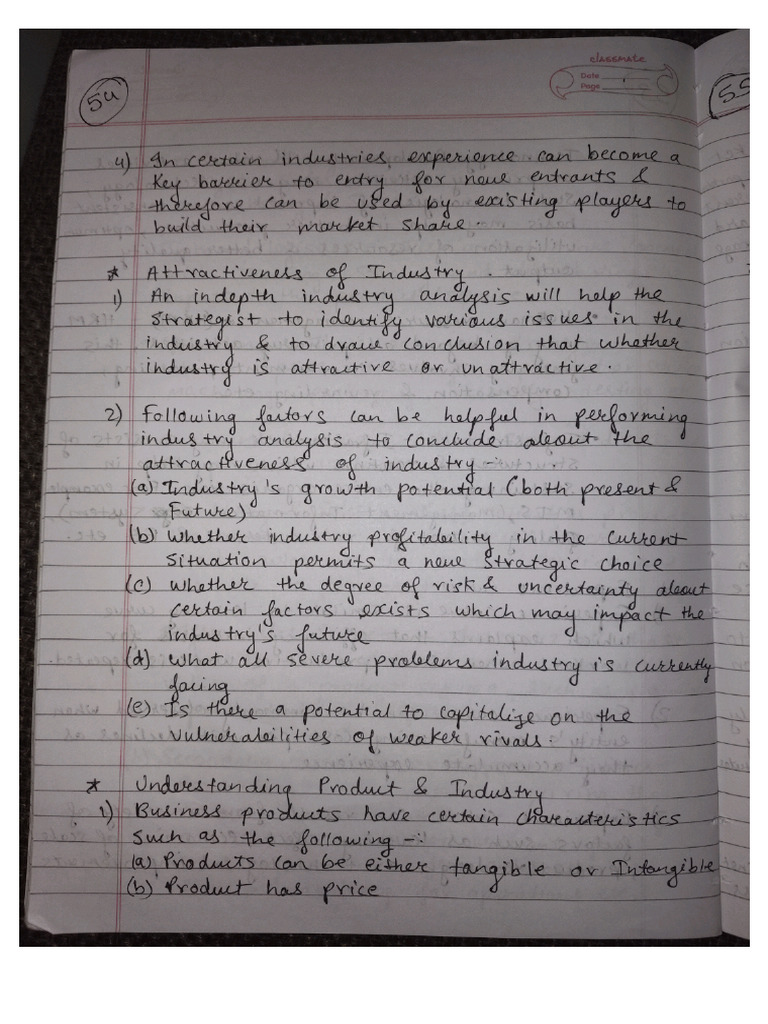 classmate
Date
Page
54
55
4) In certain industries, experience can become a
key barrier to entry for new entrants &
therefore can be used by existing players to
build their market share.
* Attractiveness of Industry.
1) An indepth industry analysis will help the
Strategist to identify various issues in the
industry & to draw conclusion that whether
industry is attractive or unattractive.
2) Following factors can be helpful in performing
industry analysis to conclude about the
attractiveness of industry -:
(a) Industry's growth potential (both present &
Future)
(b) Whether industry profitability in the current
Situation permits a new strategic choice
(c) Whether the degree of risk & uncertainty about
certain factors exists which may impact the
industry's future
(d) What all severe problems industry is currently
facing
(e) Is there a potential to capitalize on the
vulnerabilities of weaker rivals.
* Understanding Product & Industry
1) Business products have certain characteristics
Such as the following -:
(a) Products can be either tangible or Intangible
(b) Product has price